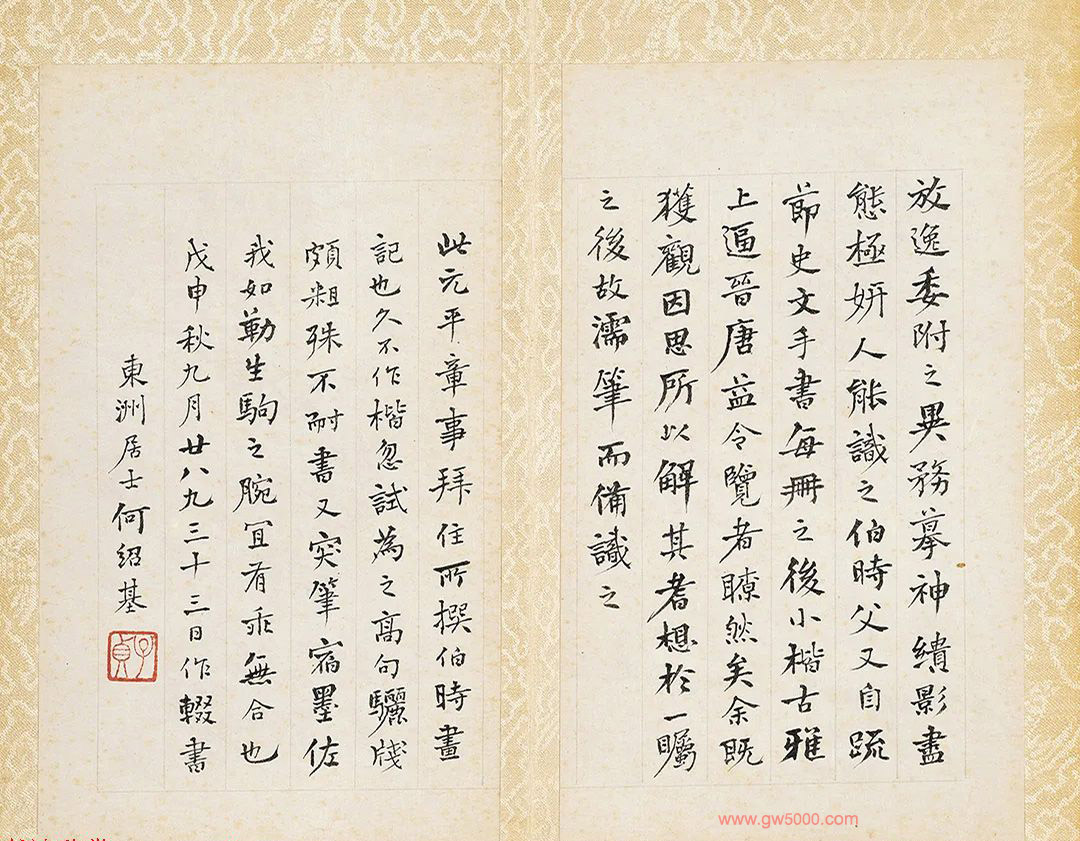 放逸委附之異務摹神繢影盡
態極妍人能識之伯時父又自疏
節史文手書每冊之後小楷古雅
上逼晉唐益令覽者瞭然矣余既
獲觀因思所以解其耆想於一矚
之後故濡筆而備識之
此元平章事拜住所撰伯時畫
記也久不作楷忽試為之高句驪牋
頗粗殊不耐書又突筆宿墨佐
我如勒生駒之腕宜有乖無合也
戊申秋九月廿八九三十三日作輟書
東洲居士何紹基
子貞
www.gw5000.com